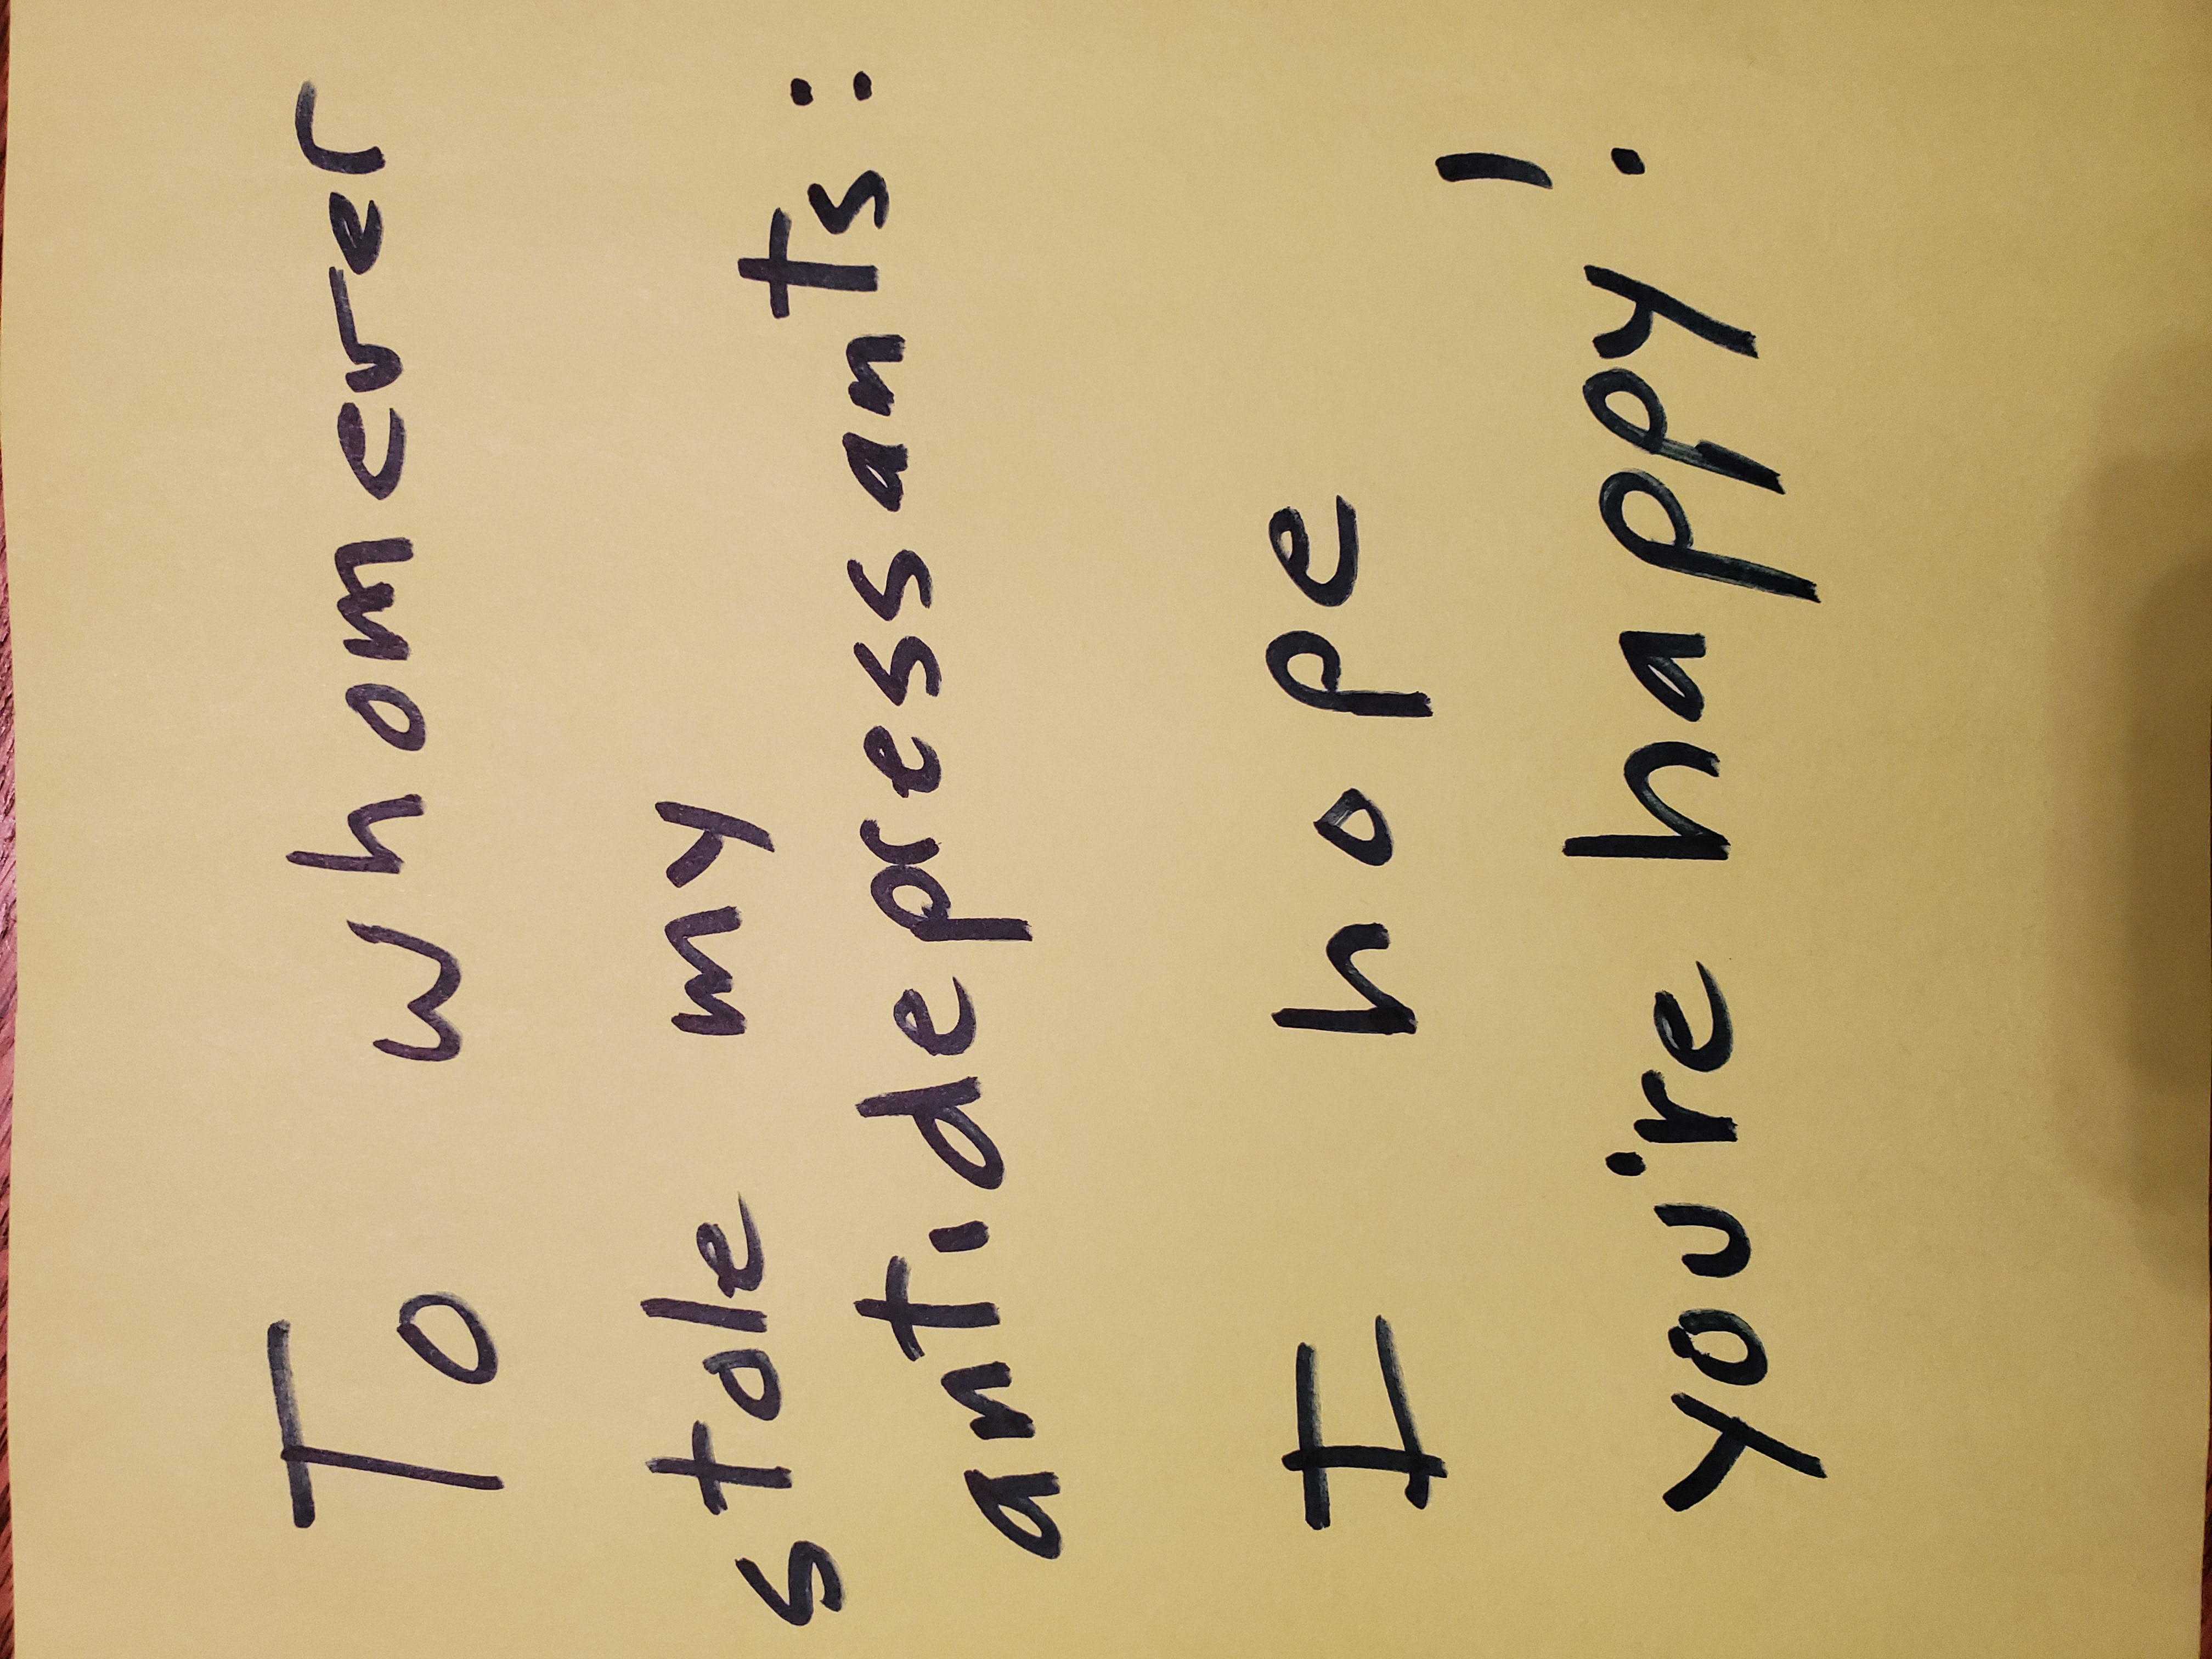 To whomever
stole my
antidepressants:
I hope
you're happy!